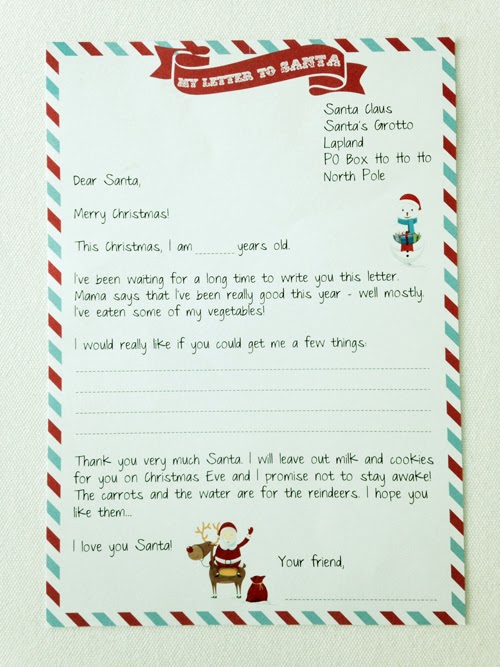 MY LETTER TO SANTA
Santa Claus
Santa's Grotto
Lapland
PO Box Ho Ho Ho
North Pole
Dear Santa,
Merry Christmas!
This Christmas, I am ______ years old.
I've been waiting for a long time to write you this letter.
Mama says that I've been really good this year - well mostly.
I've eaten some of my vegetables!
I would really like if you could get me a few things:
Thank you very much Santa. I will leave out milk and cookies
for you on Christmas Eve and I promise not to stay awake!
The carrots and the water are for the reindeers. I hope you
like them...
I love you Santa!
Your friend,